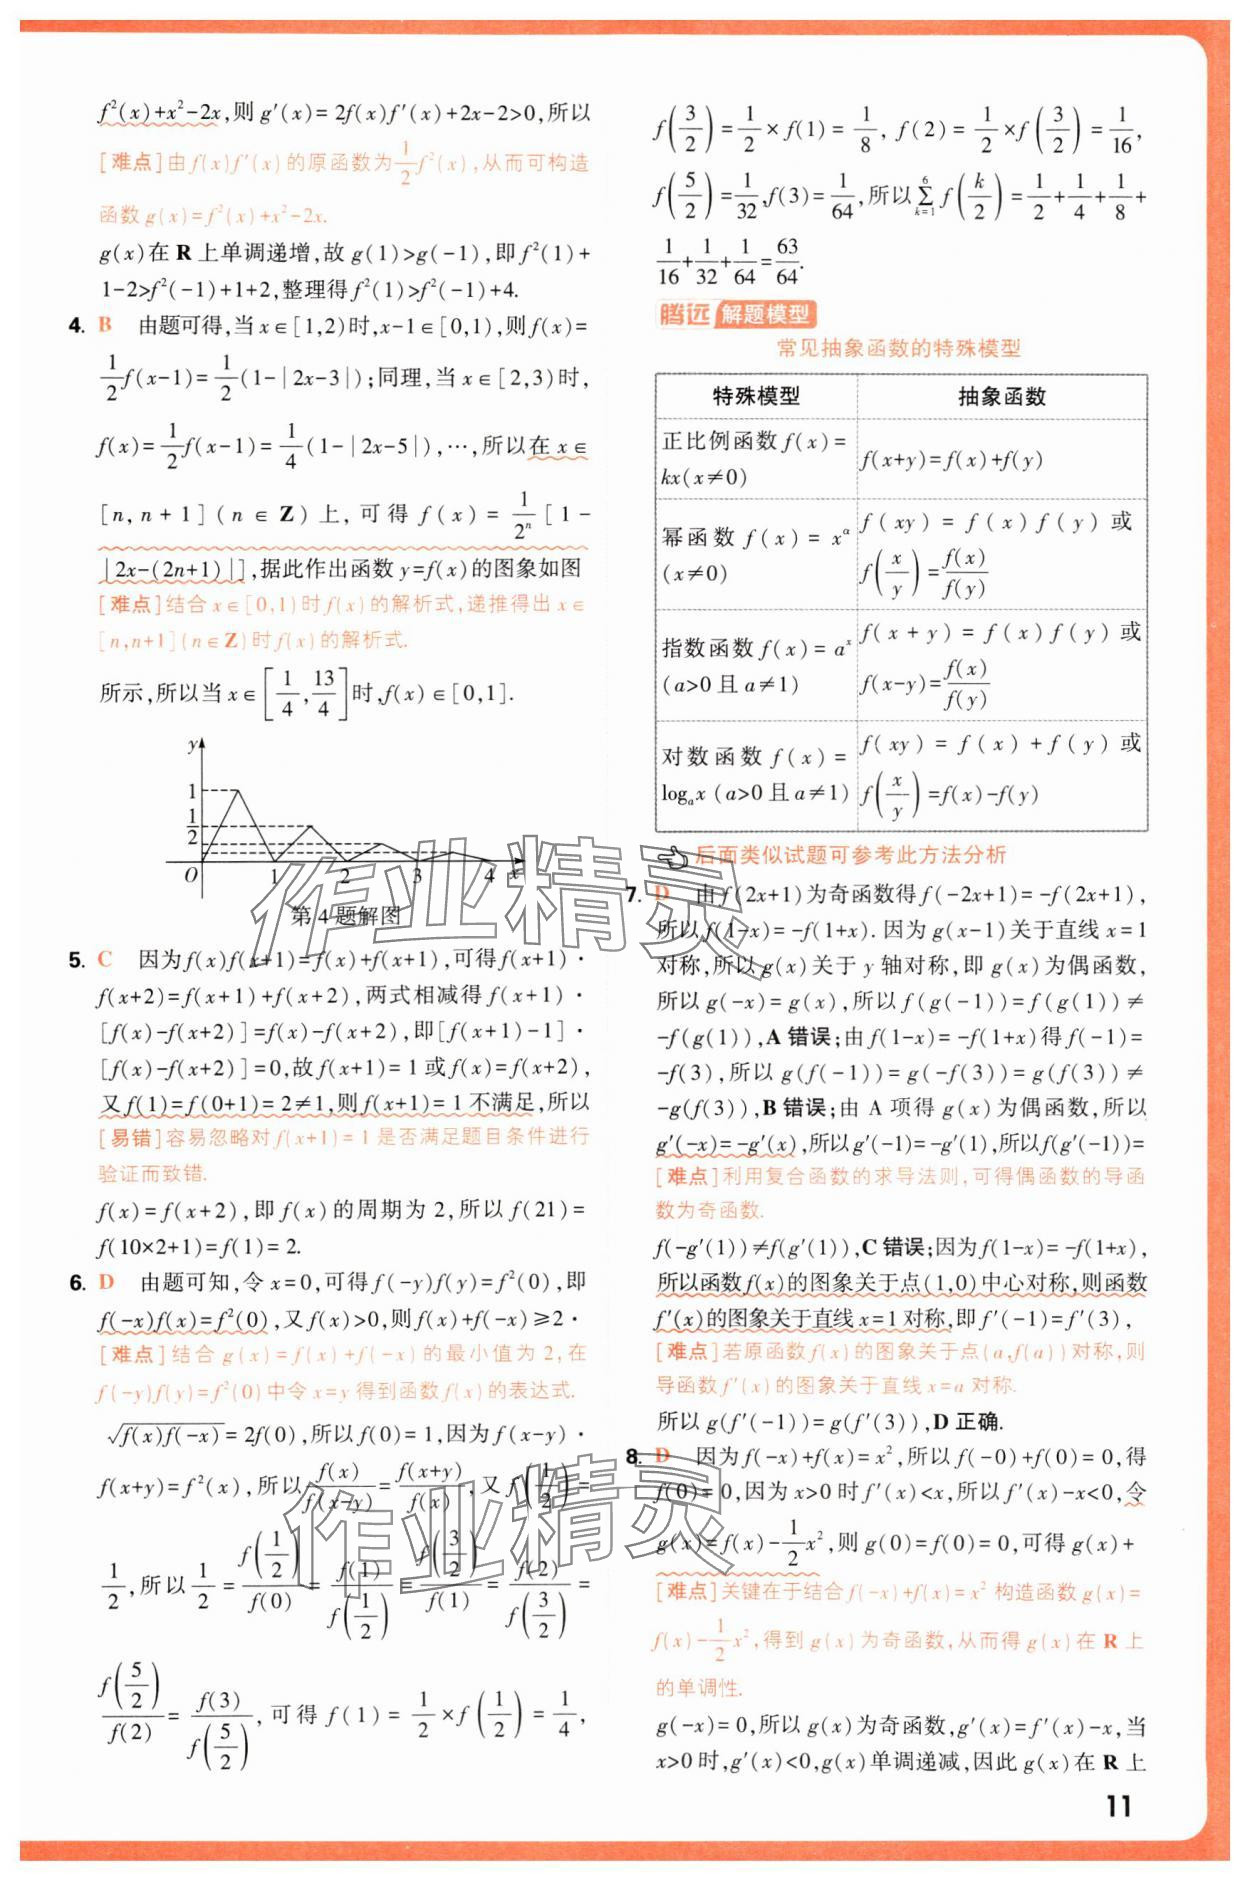 f²(x)+x²-2x,则 g′(x)=2f(x)f′(x)+2x-2>0,所以
[难点]由 f(x)f′(x)的原函数为1/2 f²(x),从而可构造
函数 g(x)=f²(x)+x²-2x.
g(x)在 R 上单调递增,故 g(1)>g(-1),即 f²(1)+
1-2>f²(-1)+1+2,整理得 f²(1)>f²(-1)+4.
4. B 由题可得,当 x∈[1,2)时,x-1∈[0,1),则 f(x)=
1/2 f(x-1)=1/2(1-|2x-3|);同理,当 x∈[2,3)时,
f(x)=1/2 f(x-1)=1/4(1-|2x-5|),…,所以在 x∈
[n,n+1](n∈Z)上,可得 f(x)=1/2ⁿ[1-
|2x-(2n+1)|],据此作出函数 y=f(x)的图象如图
[难点]结合 x∈[0,1)时 f(x)的解析式,递推得出 x∈
[n,n+1](n∈Z)时 f(x)的解析式.
所示,所以当 x∈[1/4,13/4]时,f(x)∈[0,1].
y
1
1/2
O 1 2 3 4 x
第 4 题解图
5. C 因为 f(x)f(x+1)=f(x)+f(x+1),可得 f(x+1)·
f(x+2)=f(x+1)+f(x+2),两式相减得 f(x+1)·
[f(x)-f(x+2)]=f(x)-f(x+2),即[f(x+1)-1]·
[f(x)-f(x+2)]=0,故 f(x+1)=1 或 f(x)=f(x+2),
又 f(1)=f(0+1)=2≠1,则 f(x+1)=1 不满足,所以
[易错]容易忽略对 f(x+1)=1 是否满足题目条件进行
验证而致错.
f(x)=f(x+2),即 f(x)的周期为 2,所以 f(21)=
f(10×2+1)=f(1)=2.
6. D 由题可知,令 x=0,可得 f(-y)f(y)=f²(0),即
f(-x)f(x)=f²(0),又 f(x)>0,则 f(x)+f(-x)≥2·
[难点]结合 g(x)=f(x)+f(-x)的最小值为 2,在
f(-y)f(y)=f²(0)中令 x=y 得到函数 f(x)的表达式.
√f(x)f(-x)=2f(0),所以 f(0)=1,因为 f(x-y)·
f(x+y)=f²(x),所以 f(x)/f(x-y)=f(x+y)/f(x),又 f(1/2)=
1/2,所以 1/2=f(1/2)/f(0)=f(1)/f(1/2)=f(3/2)/f(1)=f(2)/f(3/2)=
f(5/2)/f(2)=f(3)/f(5/2),可得 f(1)=1/2×f(1/2)=1/4,
f(3/2)=1/2×f(1)=1/8,f(2)=1/2×f(3/2)=1/16,
f(5/2)=1/32,f(3)=1/64,所以 ∑ k=1 6 f(k/2)=1/2+1/4+1/8+
1/16+1/32+1/64=63/64.
腾远 解题模型
常见抽象函数的特殊模型
特殊模型 抽象函数
正比例函数 f(x)=
kx(x≠0)
f(x+y)=f(x)+f(y)
幂函数 f(x)=xᵅ
(x≠0)
f(xy)=f(x)f(y)或
f(x/y)=f(x)/f(y)
指数函数 f(x)=aˣ
(a>0 且 a≠1)
f(x+y)=f(x)f(y)或
f(x-y)=f(x)/f(y)
对数函数 f(x)=
logₐx(a>0 且 a≠1)
f(xy)=f(x)+f(y)或
f(x/y)=f(x)-f(y)
后面类似试题可参考此方法分析
7. D 由 f(2x+1)为奇函数得 f(-2x+1)=-f(2x+1),
所以 f(1-x)=-f(1+x).因为 g(x-1)关于直线 x=1
对称,所以 g(x)关于 y 轴对称,即 g(x)为偶函数,
所以 g(-x)=g(x),所以 f(g(-1))=f(g(1))≠
-f(g(1)),A 错误;由 f(1-x)=-f(1+x)得 f(-1)=
-f(3),所以 g(f(-1))=g(-f(3))=g(f(3))≠
-g(f(3)),B 错误;由 A 项得 g(x)为偶函数,所以
g′(-x)=-g′(x),所以 g′(-1)=-g′(1),所以 f(g′(-1))=
[难点]利用复合函数的求导法则,可得偶函数的导函
数为奇函数.
f(-g′(1))≠f(g′(1)),C 错误;因为 f(1-x)=-f(1+x),
所以函数 f(x)的图象关于点(1,0)中心对称,则函数
f′(x)的图象关于直线 x=1 对称,即 f′(-1)=f′(3),
[难点]若原函数 f(x)的图象关于点(a,f(a))对称,则
导函数 f′(x)的图象关于直线 x=a 对称.
所以 g(f′(-1))=g(f′(3)),D 正确.
8. D 因为 f(-x)+f(x)=x²,所以 f(-0)+f(0)=0,得
f(0)=0,因为 x>0 时 f′(x)<x,所以 f′(x)-x<0,令
g(x)=f(x)-1/2x²,则 g(0)=f(0)=0,可得 g(x)+
[难点]关键在于结合 f(-x)+f(x)=x² 构造函数 g(x)=
f(x)-1/2x²,得到 g(x)为奇函数,从而得 g(x)在 R 上
的单调性.
g(-x)=0,所以 g(x)为奇函数,g′(x)=f′(x)-x,当
x>0 时,g′(x)<0,g(x)单调递减,因此 g(x)在 R 上
11
作业精灵
作业精灵